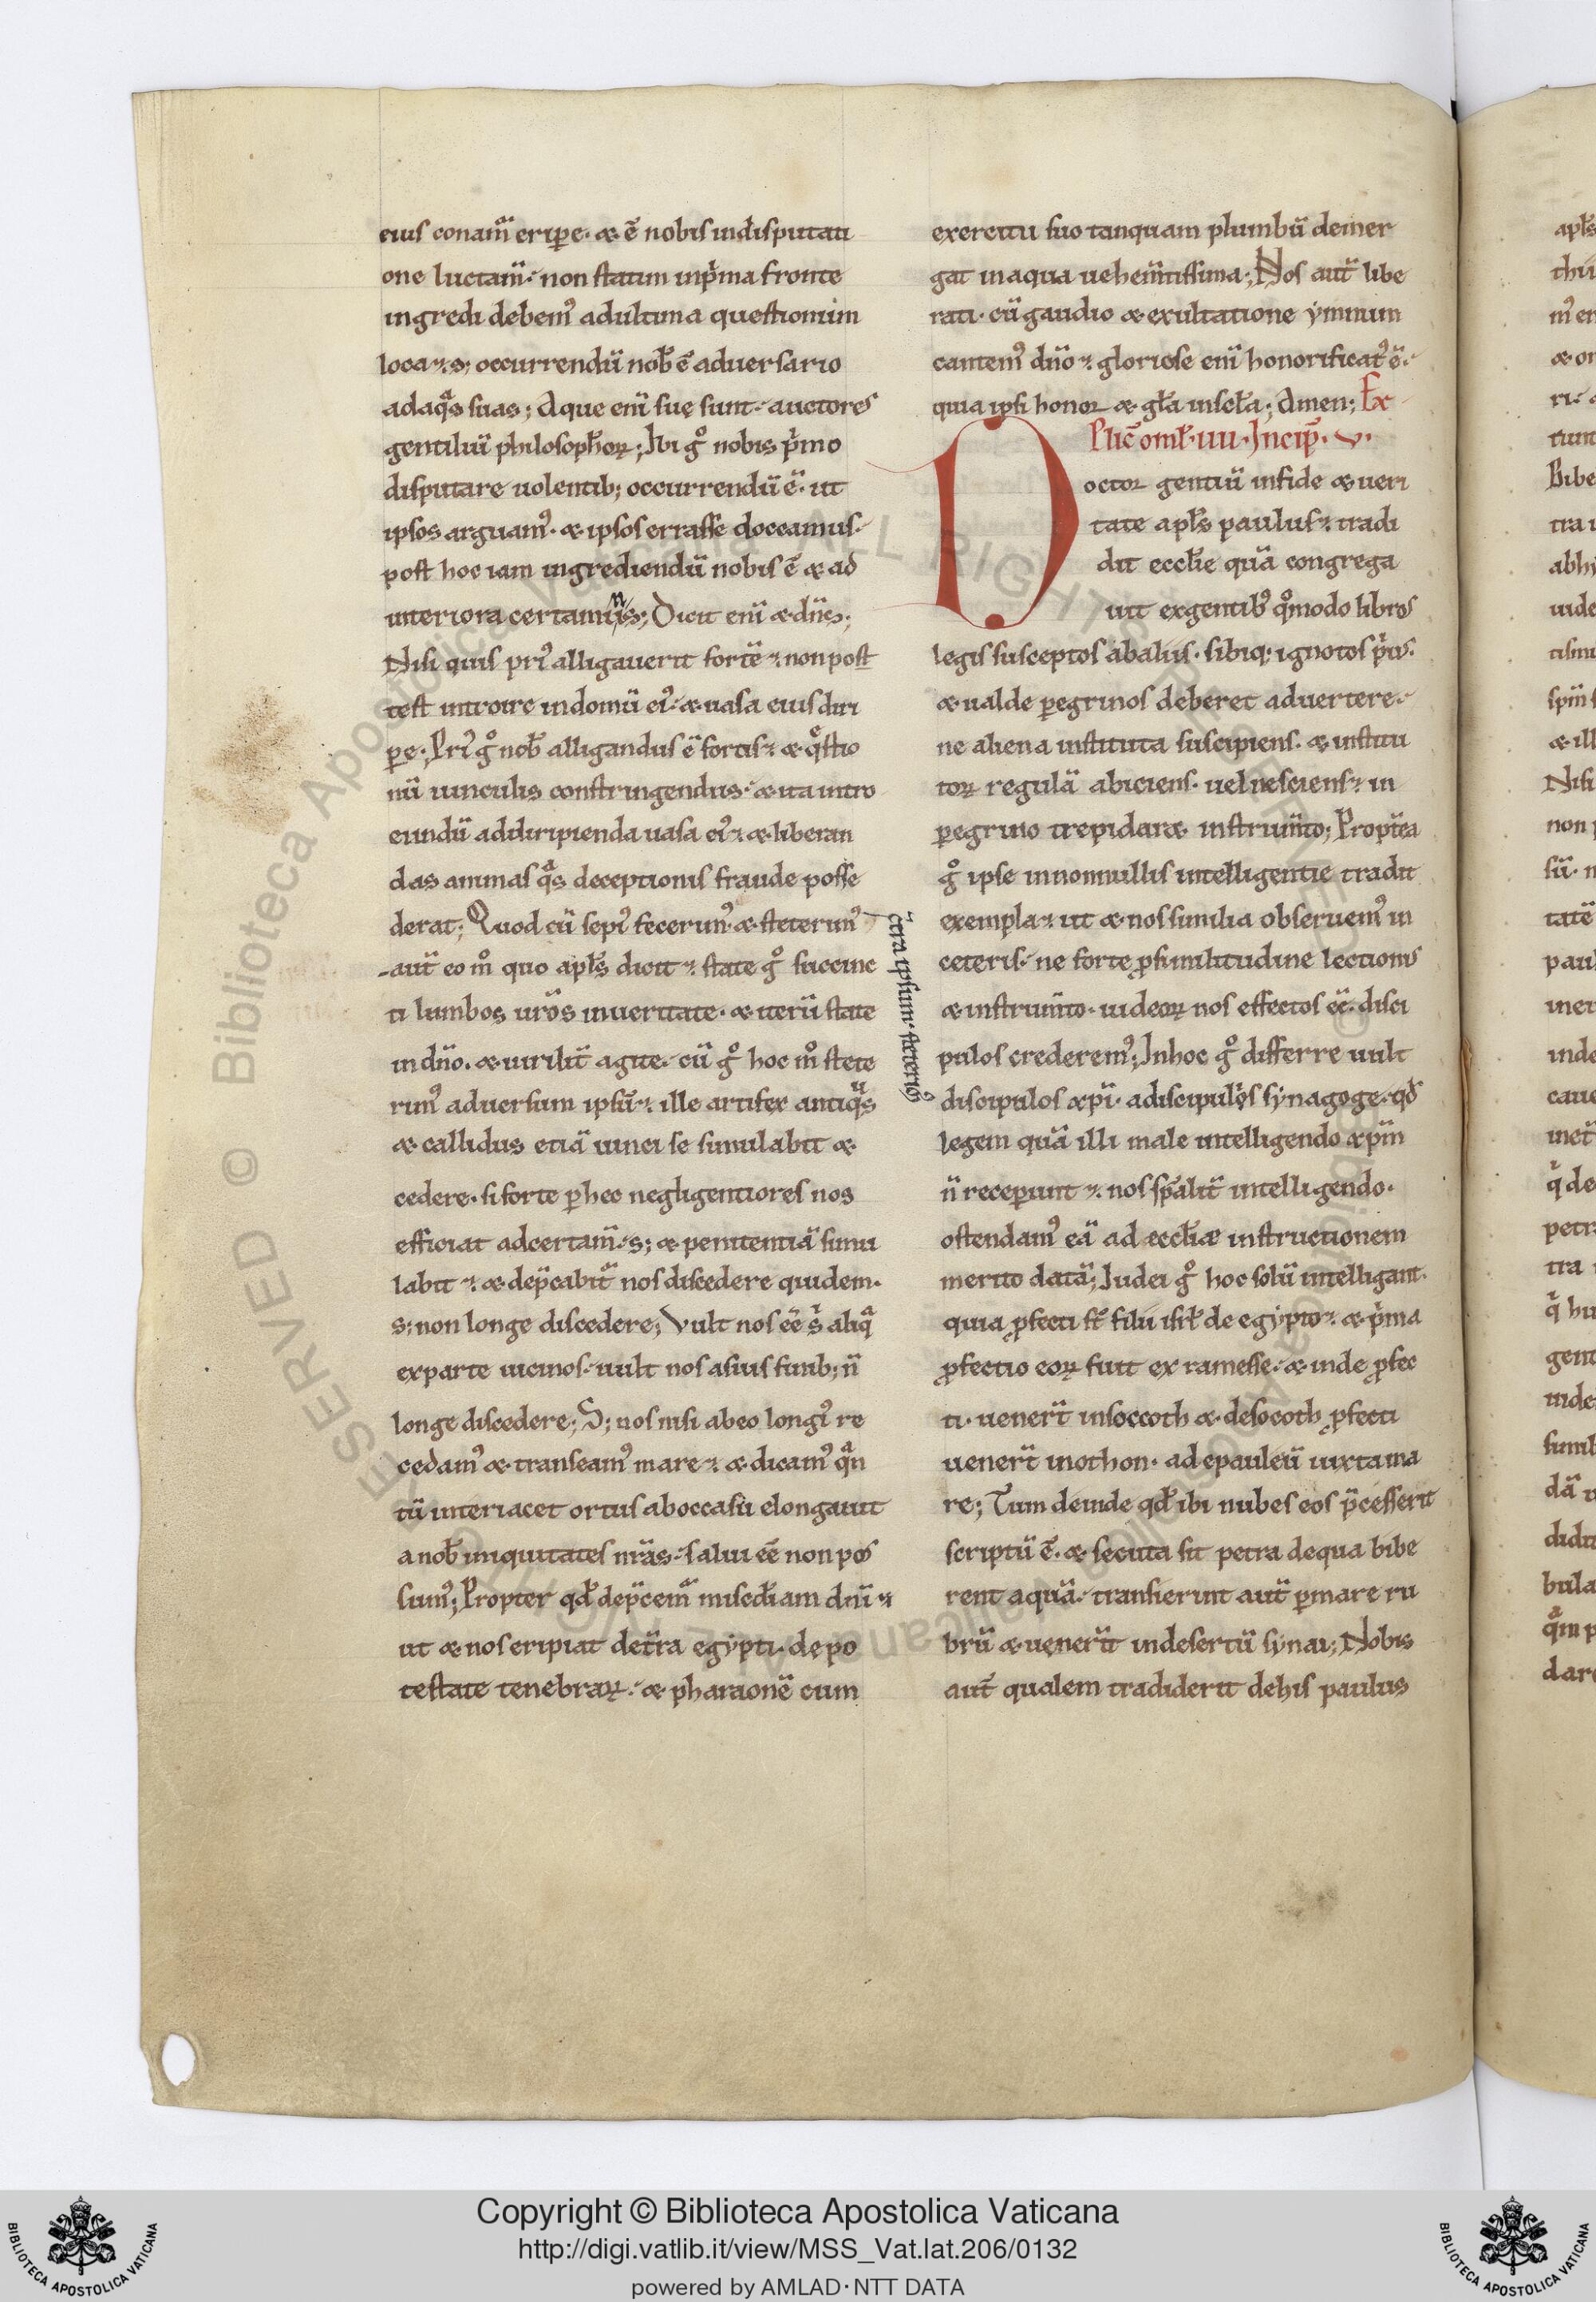 eius conam̄ eripe· & ē nobis indisputati
one luctam̄· non statim inp̄ma fronte
ingredi debem᾽ adultima questionum
loca· s; occurrendū nob̄ ē adversario
adaq̄s suas; Aque enī sue sunt· auctores
gentiliū philosophoꝝ; Ibi gͦ nobis p̄mo
disputare uolentib; occurrendū ē· ut
ipsos arguam᾽· & ipsos errasse doceamus·
post hoc iam ingrediendū nobis ē & ad
interiora certaminis; Dicit enī & dn̄s;
Nisi quis pri᾽ alligauerit fortē· non post
test introire indomū ei᾽· & uasa eius diri
ꝑe; Pri᾽ gͦ nob̄ alligandus ē fortis· & qͦstio
nū uinculis constringendus· & ita intro
eundū addiripienda uasa ei᾽· & liberan
das animas q̄s deceptionis fraude posse
derat; Quod cū sepi᾽ fecerim᾽ & steterim᾽
-aut̄ eo mͦ quo apl̄s dicit· state gͦ succinc
ti lumbos ur̄os inueritate· & iterū state
in dn̄o· & uirilit̄ agite· cū gͦ hoc mͦ stete
rim᾽ aduersum ipsū· ille artifex antiqus
& callidus etiā uinci se simulabit &
cedere· si forte ꝑ hec negligentiores nos
efficiat adcertam̄· s; & penitentiā simu
labit· & dep̄cabit᷑ nos discedere quidem·
s; non longe discedere; Vult nos eē s̄ aliq̄
exparte uicinos· uult nos asuis finib; n̄
longe discedere; S; nos nisi abeo longi᾽ re
cedam᾽ & transeam᾽ mare· & dicam᾽ q̄n
tū interiacet ortus aboccasu elongauit
a nob̄ iniquitates nr̄as· salui eē non pos
sum᾽; Propter qd̄ dep̄cem᷑ misedīam dn̄i·
ut & nos eripiat det̄ra egypti· de po
testate tenebraꝝ· & pharaonē cum
c̄tra ipsum· steterim᾽
exercitu suo tanquam plumbū demer
gat inaqua uehem̄tissima; Nos aut̄ libe
rati· cū gaudio & exultatione ymnum
cantem᾽ dn̄o· gloriose enī honorificat᾽ ē·
quia ipsi honor & gl̄a inscl̄a; Amen; Ex
Plic̄ oml̄· iiii· Incip̄· v·
Doctor gentiū infide & ueri
tate apl̄s paulus· tradi
dit eccl̄ie quā congrega
uit exgentib᾽ qͦmodo libros
legis susceptos abaliis· sibiq; ignotos p̄us·
& ualde ꝑegrinos deberet aduertere·
ne aliena instituta suscipiens· & institu
toꝝ regulā abiciens· uel nesciens· in
ꝑegrino trepidaret instrum̄to; Propt̄ea
gͦ ipse innonnullis intelligentie tradit
exempla· ut & nos similia obseruem᾽ in
ceteris· ne forte ꝓ similitudine lectionis
& instrum̄to· iudeoꝝ nos effectos eē· disci
pulos crederem᾽; Inhoc gͦ differre uult
discipulos xp̄i· adiscipulis synagoge· qd̄
legem quā illi male intelligendo xp̄m
n̄ receperunt· nos spālit̄ intelligendo·
ostendam᾽ eā ad eccl̄iæ instructionem
merito datā; Iudei gͦ hoc solū intelligunt·
quia ꝓfecti st̄ filii isrl̄ de egypto· & p̄ma
ꝓfectio eoꝝ fuit ex ramesse· & inde ꝓfec
ti· uenert̄ insoccoth & desocoth ꝓfecti
uenert̄ inothon· ad epauleū iuxta ma
re; Tum deinde qd̄ ibi nubes eos p̄cesserit
scriptū ē· & secuta sit petra dequa bibe
rent aquā· transierunt aut̄ ꝑmare ru
brū & uenert̄ indesertū synai; Nobis
aut̄ qualem tradiderit dehis paulus
Copyright © Biblioteca Apostolica Vaticana
http://digi.vatlib.it/view/MSS_Vat.lat.206/0132
powered by AMLAD·NTT DATA